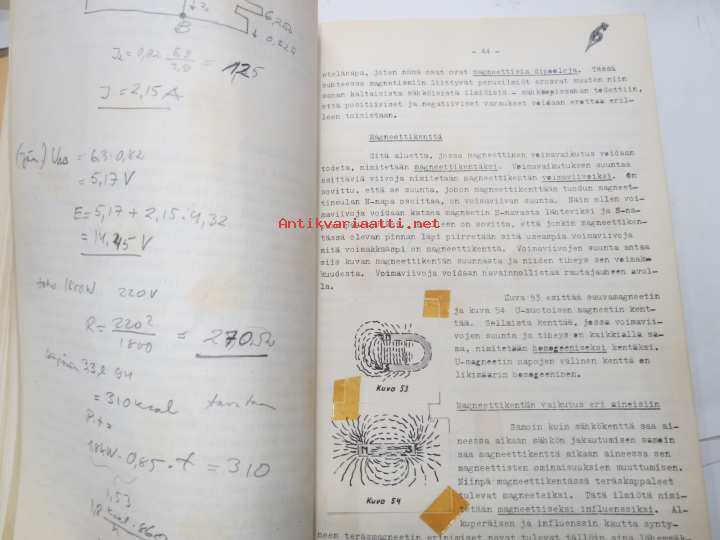 6,2Ω
0,22Ω
B
= 1,25
J = 2,15 A
= 63·0,82
= 5,17 V
E = 5,17 + 2,15·4,32
= 14,45 V
220 V
R = 220² / 1800 = 270Ω
= 310 kcal
18kW·0,85·t = 310
1.53
- 44 -
etelänapa, joten nämä osat ovat magneettisia dipooleja. Tässä
suhteessa magnetismiin liittyvät perusilmiöt eroavat muuten niin
saman kaltaisista sähköisistä ilmiöistä - sähköopissahan todettiin,
että positiiviset ja negatiiviset varaukset voidaan erottaa eril-
leen toisistaan.
Magneettikenttä
Sitä aluetta, jossa magneettinen voimavaikutus voidaan
todeta, nimitetään magneettikentäksi. Voimavaikutuksen suuntaa
esittäviä viivoja nimitetään magneettikentän voimaviivoiksi. On
sovittu, että se suunta, johon magneettikenttään tuodun magneet-
tineulan N-napa osoittaa, on voimaviivan suunta. Näin ollen voi-
maviivoja voidaan katsoa magnetin N-navasta lähteviksi ja S-na-
Antikvariaatti.net
leen on sovittu, että jonkin magneettiken-
tässä olevan pinnan läpi piirretään sitä useampia voimaviivoja
mitä voimakkaampi on magneettikenttä. Voimaviivojen suunta antaa
siis kuvan magneettikentän suunnasta ja niiden tiheys sen voimak-
kuudesta. Voimaviivoja voidaan havainnollistaa rautajauheen avul-
la.
Kuva 53 esittää sauvamagneetin
ja kuva 54 U-muotoisen magneetin kent-
tää. Sellaista kenttää, jossa voimavii-
vojen suunta ja tiheys on kaikkialla sa-
ma, nimitetään homogeeniseksi kentäksi.
U-magneetin napojen välinen kenttä on
likimäärin homogeeninen.
Kuva 53
Magneettikentän vaikutus eri aineisiin
Samoin kuin sähkökenttä saa ai-
neessa aikaan sähkön jakautumisen samoin
saa magneettikenttä aikaan aineessa sen
magneettisten ominaisuuksien muuttumisen.
Niinpä magneettikentässä teräskappaleet
tulevat magneeteiksi. Tätä ilmiötä nimi-
tetään magneettiseksi influenssiksi. Al-
kuperäisen ja influenssin kautta synty-
N S
Kuva 54
neen teräsmagneetin erinimiset navat tulevat tällöin aina lähemmäk-